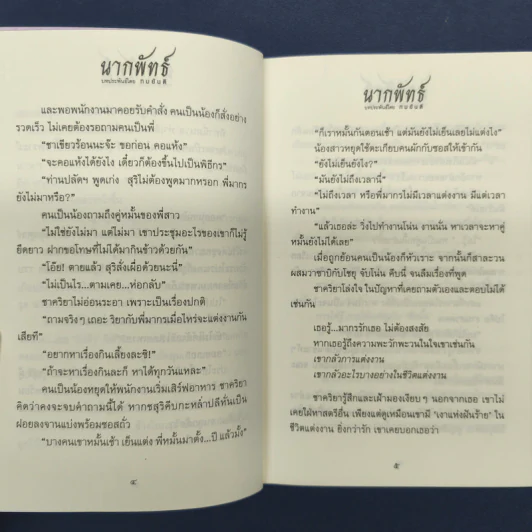 นากพัทธ์
บทประพันธ์โดย ทมยันตี
และพอพนักงานมาคอยรับคำสั่ง คนเป็นน้องก็สั่งอย่าง
รวดเร็ว ไม่เคยต้องรอถามคนเป็นพี่
“ชาเขียวร้อนนะจ๊ะ ขอก่อน คอแห้ง”
“จะคอแห้งได้ยังไง เดี๋ยวก็ต้องขึ้นไปเป็นพิธีกร”
“ท่านปลัดฯ พูดเก่ง สุริไม่ต้องพูดมากหรอก พี่มารก
ยังไม่มาหรือ?”
คนเป็นน้องถามถึงคู่หมั้นของพี่สาว
“ไม่ใช่ยังไม่มา แต่ไม่มา เขาประชุมอะไรของเขาก็ไม่รู้
ยืดยาว ฝากขอโทษที่ไม่ได้มากินข้าวด้วยกัน”
“โอ๊ย! ตายแล้ว สุริสั่งเผื่อด้วยนะนี่”
“ไม่เป็นไร...ตามเคย...ห่อกลับ”
ชาคริยาไม่อ่อนระอา เพราะเป็นเรื่องปกติ
“ถามจริงๆ เถอะ ริยากับพี่มารกเมื่อไหร่จะแต่งงานกัน
เสียที”
“อยากหาเรื่องกินเลี้ยงละซี!”
“ถ้าจะหาเรื่องกินละก็ หาได้ทุกวันแหละ”
คนเป็นน้องหยุดให้พนักงานเริ่มเสิร์ฟอาหาร ชาคริยา
คิดว่าคงจะจบคำถามนี้ได้ หากชสุริคีบกะหล่ำปลีหั่นเป็น
ฝอยลงจานแบ่งพร้อมซอสถั่ว
“บางคนเขาหมั้นเช้า เย็นแต่ง พี่หมั้นมาตั้ง...ปี แล้วมั้ง”
๔
นากพัทธ์
บทประพันธ์โดย ทมยันตี
“ก็เราหมั้นกันตอนเช้า แต่มันยังไม่เย็นเลยไม่แต่งไง”
น้องสาวหยุดใช้ตะเกียบคนผักกับซอสให้เข้ากัน
“ยังไม่เย็นยังไง?”
“มันยังไม่ถึงเวลานี่”
“ไม่ถึงเวลา หรือพี่มารกไม่มีเวลาแต่งงาน มีแต่เวลา
ทำงาน”
“แล้วเธอล่ะ วิ่งไปทำงานโน่น งานนั่น หาเวลาจะหาคู่
หมั้นยังไม่ได้เลย”
เมื่อถูกย้อนคนเป็นน้องก็หัวเราะ จากนั้นก็สาละวน
ผสมวาซาบิกับโชยุ จับโน่น คีบนี่ จนลืมเรื่องที่พูด
ชาคริยาโล่งใจ ในปัญหาที่เคยถามตัวเองและตอบไม่ได้
เช่นกัน
เธอรู้...มารกรักเธอ ไม่ต้องสงสัย
หากเธอรู้ถึงความพะวักพะวนในใจเขาเช่นกัน
เขากลัวการแต่งงาน
เขากลัวอะไรบางอย่างในชีวิตแต่งงาน
ชาคริยารู้สึกและเฝ้ามองเงียบๆ นอกจากเธอ เขาไม่
เคยใฝ่หาสตรีอื่น เพียงแต่ดูเหมือนเขามี “เงาแห่งฝันร้าย” ใน
ชีวิตแต่งงาน ยิ่งกว่ารัก เขาเคยบอกเธอว่า
๕